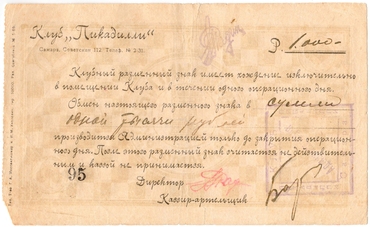 Клуб „Пикадилли“
Самара, Советская 112. Телеф. № 2-31.
Р. 1.000-
Клубный разменный знак имеет хождение исключительно
в помещении Клуба и в течении одного операционного дня.
Обмен настоящего разменного знака в сумме
одной тысячи рублей
производится Администрацией только до закрытия операцион-
ного дня. После этого разменный знак считается не действитель-
ным и кассой не принимается.
95
Директор
Кассир-артельщик